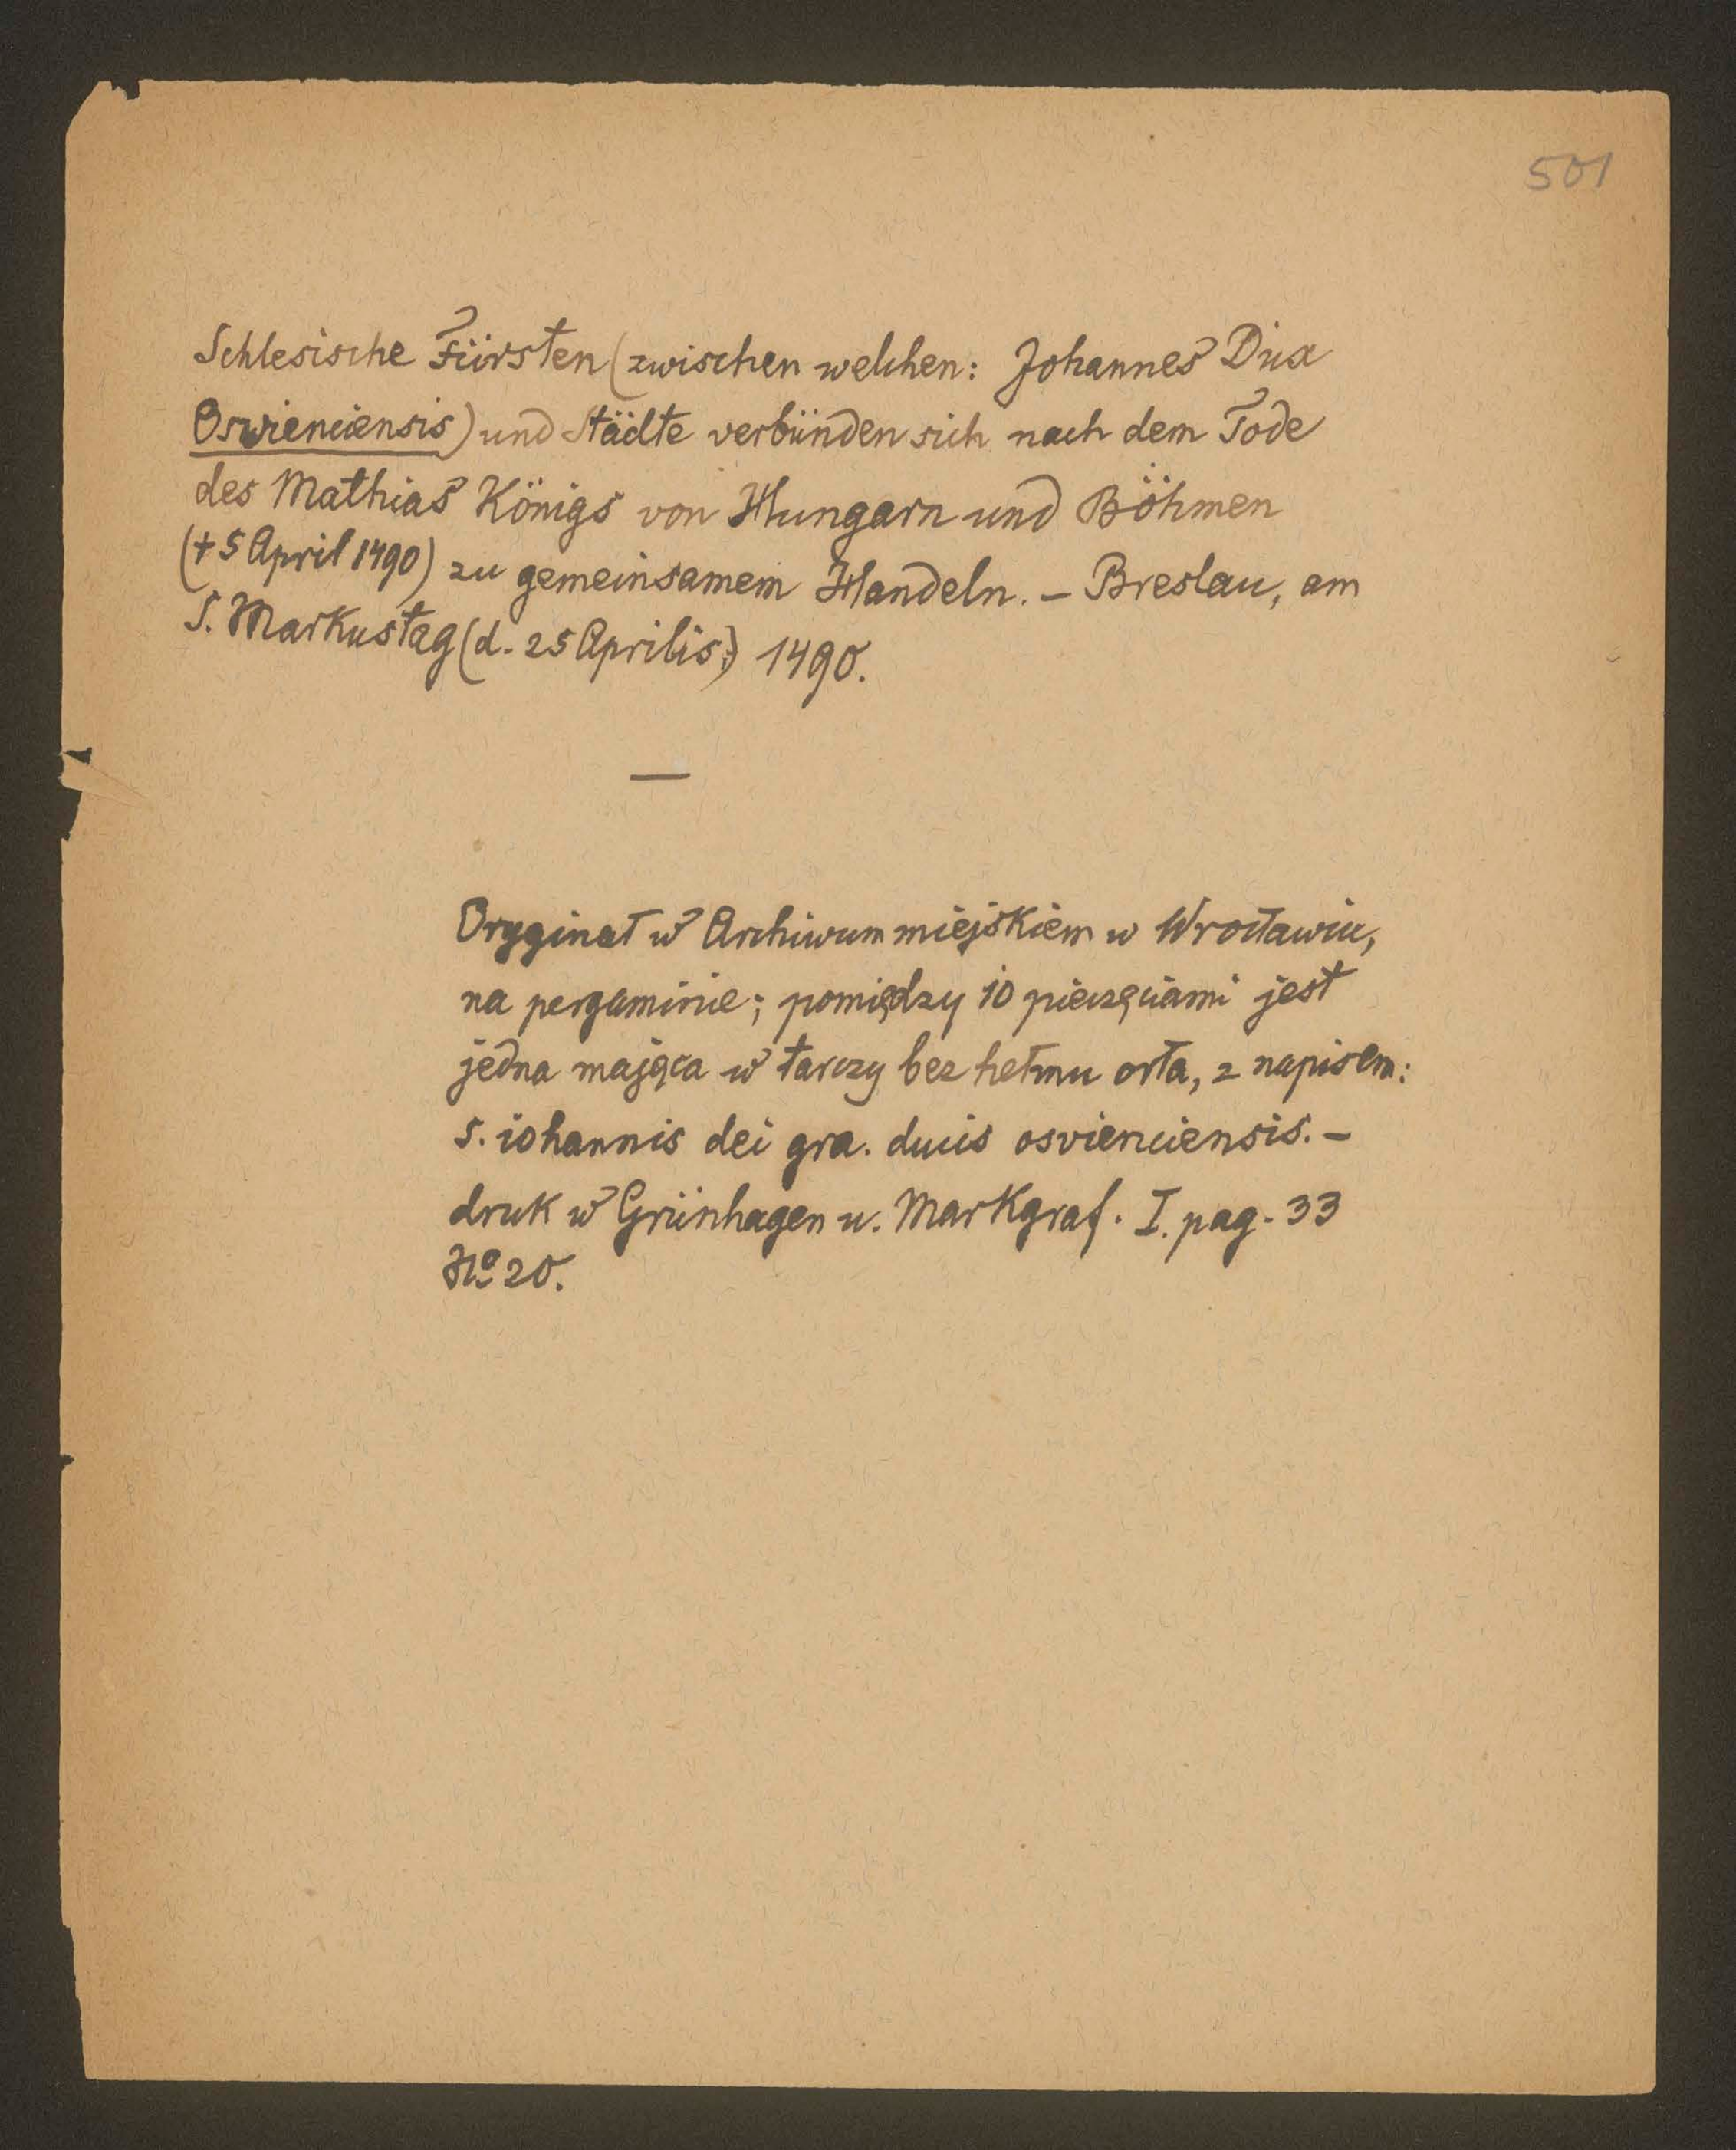 501
Schlesische Fürsten (zwischen welchen: Johannes Dux
Oswienciensis) und Städte verbünden sich nach dem Tode
des Mathias Königs von Hungarn und Böhmen
(+ 5 April 1490) zu gemeinsamem Handeln. – Breslau, am
S. Markustag (d. 25 Aprilis) 1490.
—
Oryginał w Archiwum miejskiem w Wrocławiu,
na pergaminie; pomiędzy 10 pieczęciami jest
jedna mająca w tarczy bez hełmu orła, z napisem:
s. iohannis dei gra. ducis osvienciensis. –
druk w Grünhagen u. Markgraf. I. pag. 33
No 20.